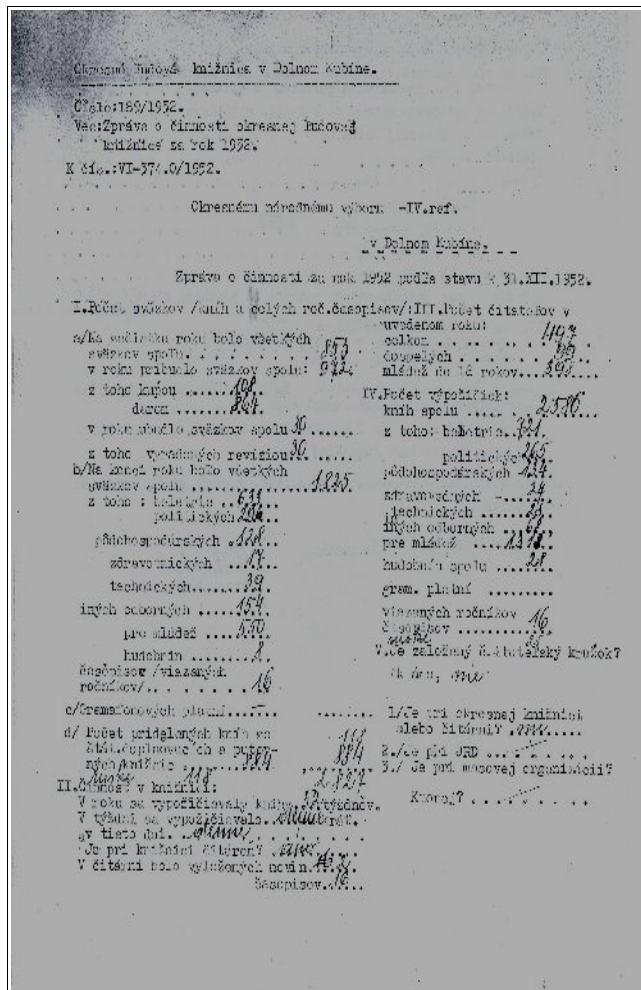 Okresná ľudová knižnica v Dolnom Kubíne.
Číslo:189/1952.
Vec:Zpráva o činnosti okresnej ľudovej
knižnice za rok 1952.
K čís.:VI-374.0/1952.
Okresnému národnému výboru -IV.ref.
v Dolnom Kubíne.
Zpráva o činnosti za rok 1952 podľa stavu k 31.XII.1952.
I.Počet sväzkov /kníh a celých roč.časopisov/:
a/Na začiatku roku bolo všetkých
sväzkov spolu. . . . . . . . 853
v roku pribudlo sväzkov spolu: 972
z toho kúpou ......108
darom ......864
v roku ubudlo sväzkov spolu
z toho vyradených revíziou
b/Na konci roku bolo všetkých
sväzkov spolu ............... 1825
z toho : beletrie ..633
politických
pôdohospodárskych .128
zdravotníckych ...17
technických....39
iných odborných ...154
pre mládež ....550
hudobnín ........8
časopisov /viazaných
ročníkov/.. . . . . . . 16
c/Gramafonových platní......
d/ Počet pridelených kníh zo
štát.doplňovacích a putov-
ných knižníc ....884 884
118 2.827
II.Činnosť v knižnici:
V roku sa vypožičiavaly knihy týždňov.
V týždni sa vypožičiavalo..denne krát.
v tieto dni. denne. . . . . .
Je pri knižnici čitáreň? .áno.
V čitárni bolo vyložených novín
časopisov..16
III.Počet čitateľov v
uvedenom roku:
celkom . . . . . . . 497
dospelých . . . . . 99
mládež do 14 rokov...398
IV.Počet výpožičiek:
kníh spolu ..... . 2586
z toho: beletrie..721
politických 265
pôdohospodárskych 134
zdravovedných -....34
technických ....
iných odborných ..
pre mládež ....
hudobnín spolu ....28
gram. platní ........
viazaných ročníkov 16
časopisov ........
V.Je založený čitateľský krúžok?
Ak áno, nie
1/Je pri okresnej knižnici
alebo čitárni? .
2./Je pri JRD ... . . . .
3./ Je pri masovej organizácii?
Ktorej? . . . . . . . .